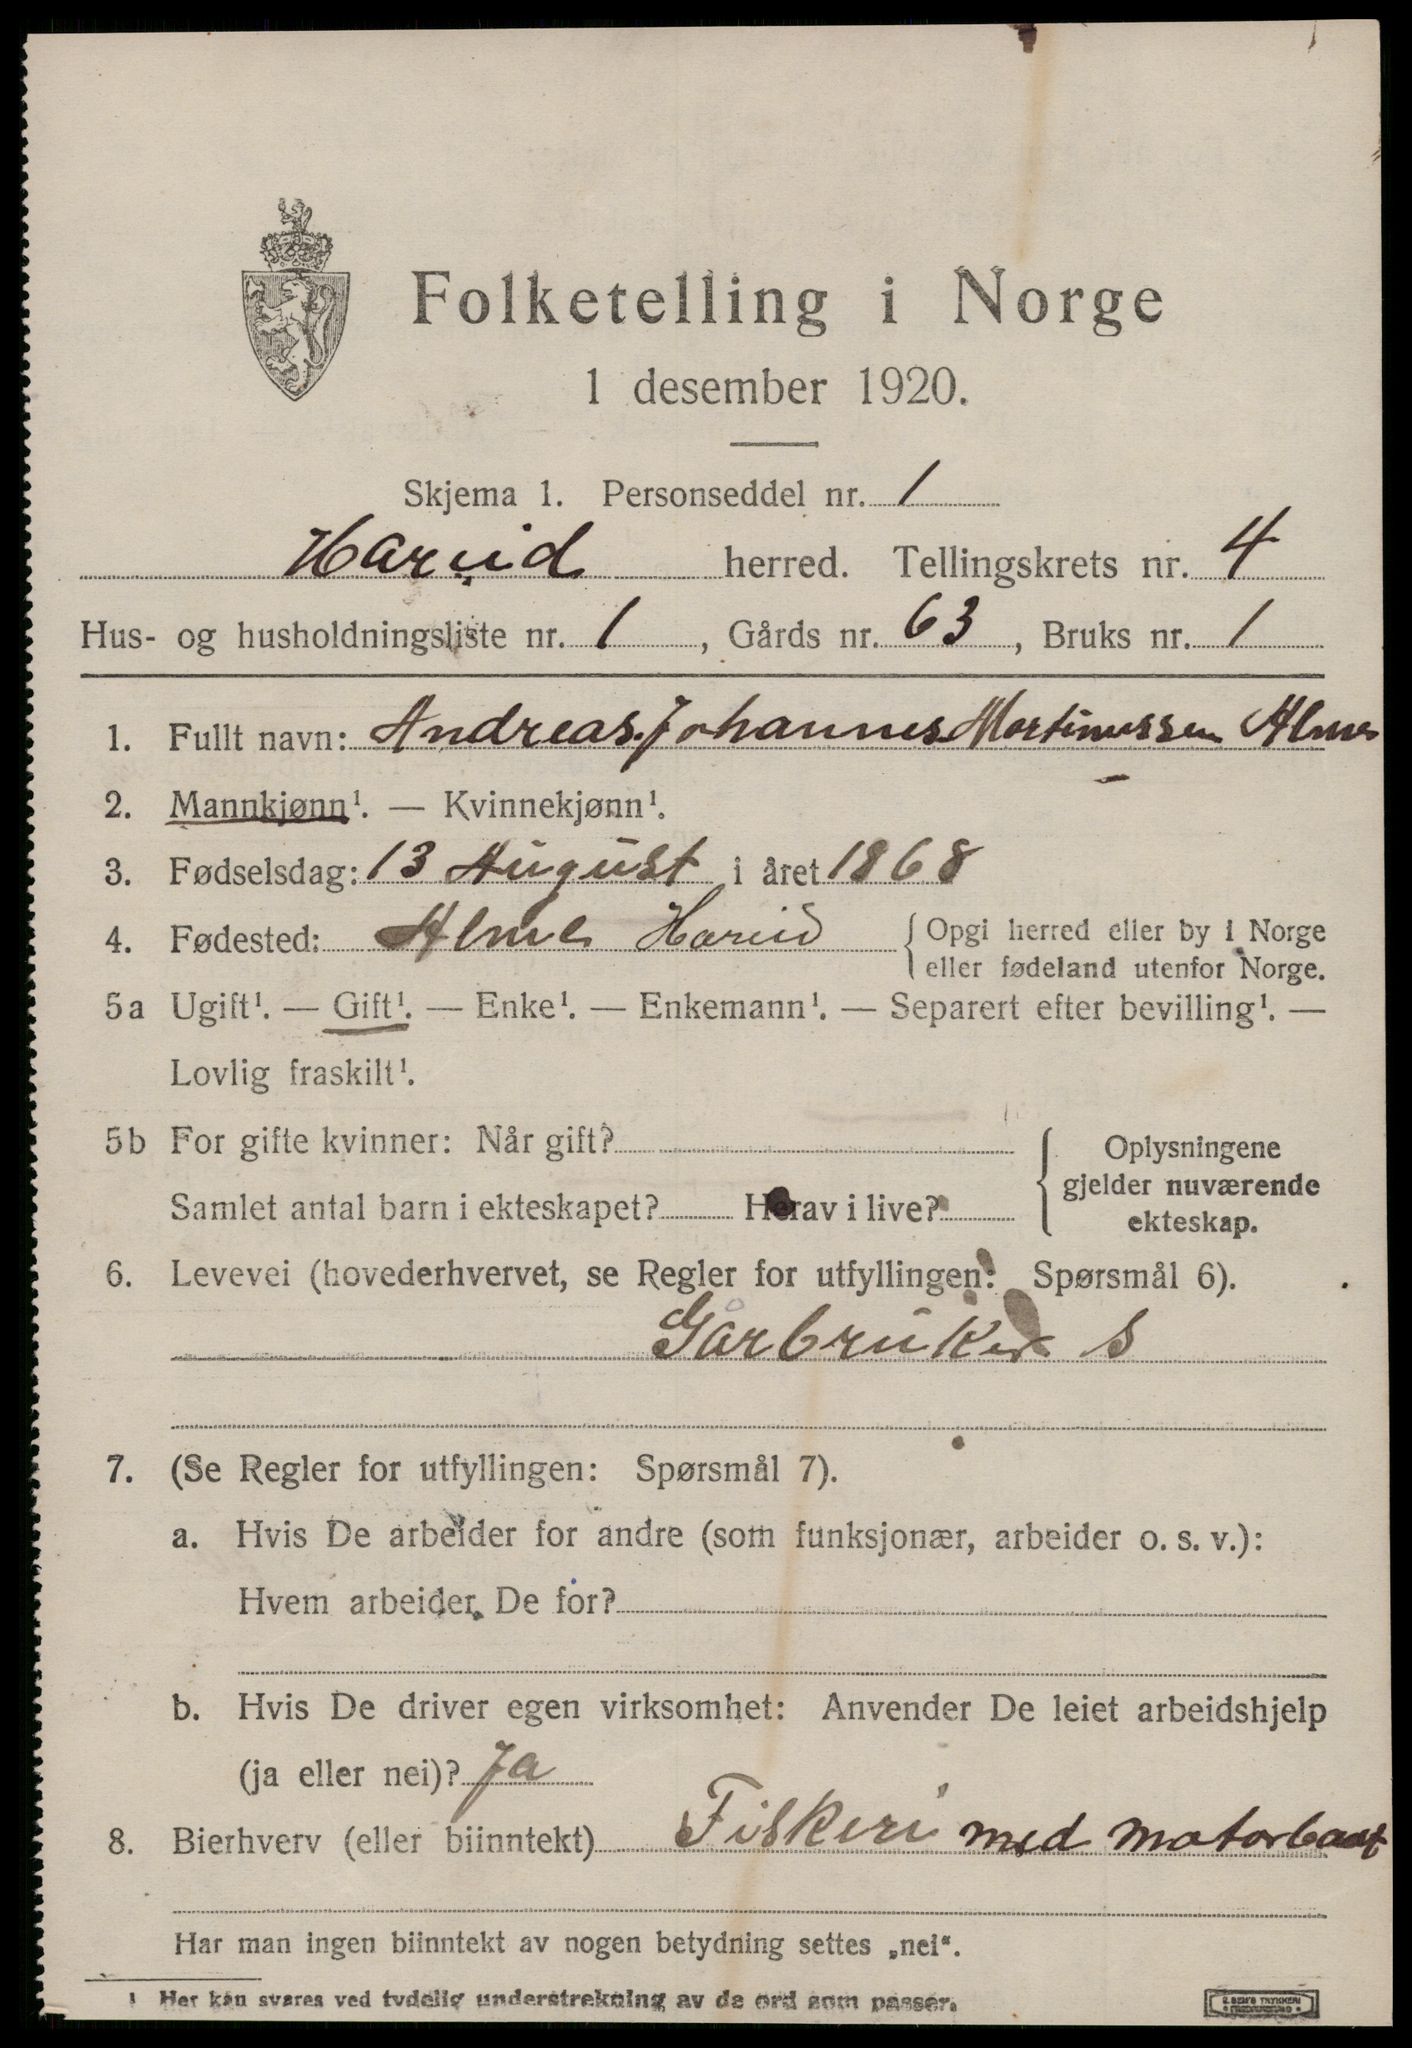 Folketelling i Norge
1 desember 1920.
Skjema 1. Personseddel nr. 1
Hareid herred. Tellingskrets nr. 4
Hus- og husholdningsliste nr. 1, Gårds nr. 63, Bruks nr. 1
1. Fullt navn: Andreas Johannes Martinussen Alme
2. Mannkjønn¹. — Kvinnekjønn¹.
3. Fødselsdag: 13 August i året 1868
4. Fødested: Alme Hareid { Opgi herred eller by i Norge
eller fødeland utenfor Norge.
5a Ugift¹. — Gift¹. — Enke¹. — Enkemann¹. — Separert efter bevilling¹. —
Lovlig fraskilt¹.
5b For gifte kvinner: Når gift?
Samlet antal barn i ekteskapet? Herav i live?
{ Oplysningene
gjelder nuværende
ekteskap.
6. Levevei (hovederhvervet, se Regler for utfyllingen: Spørsmål 6).
Gårbruker S
7. (Se Regler for utfyllingen: Spørsmål 7).
a. Hvis De arbeider for andre (som funksjonær, arbeider o. s. v.):
Hvem arbeider De for?
b. Hvis De driver egen virksomhet: Anvender De leiet arbeidshjelp
(ja eller nei)? Ja
8. Bierhverv (eller biinntekt) Fiskeri med motorbaat
Har man ingen biinntekt av nogen betydning settes „nei“.
1 Her kan svares ved tydelig understrekning av de ord som passer.